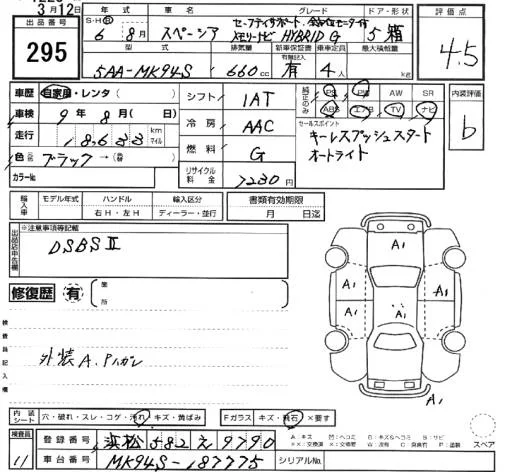 3月12日
出品番号
295
年式 車名 グレード ドア・形状 評価点
S・H・R 6年 8月 スペーシア セーフティサポート、全方位モニター付
メモリーナビ HYBRID G 5 箱
4.5
型式 排気量 新車保証書 乗車定員 最大積載量
有無記入
5AA-MK94S 660cc 有 4人 kg
車歴 自家用・レンタ( )
車検 9年8月( 日)
走行 18633 km マイル
色 ブラック→
カラーNo.
シフト 1AT
冷房 AAC
燃料 G
リサイクル料金 7230円
純正のみ PS PW AW SR
ABS エアB TV ナビ
セールスポイント
キーレスプッシュスタート
オートライト
内装評価
b
輸入車 モデル年式 ハンドル 輸入区分
年 右H・左H ディーラー・並行
書類有効期限
月 日迄
出品店申告欄
※注意事項等記載
DSBSⅡ
修復歴 有 箇所
検査員記入欄
外装A、P、ハガレ
A1
A1
A1
A1
A1
A1
内装シート 穴・破れ・スレ・コゲ・汚れ・キズ・黄ばみ
Fガラス キズ・飛石・×要す
スペア
検査員 11
登録番号 浜松582え9790
車台番号 MK94S-187775
シリアルNo.